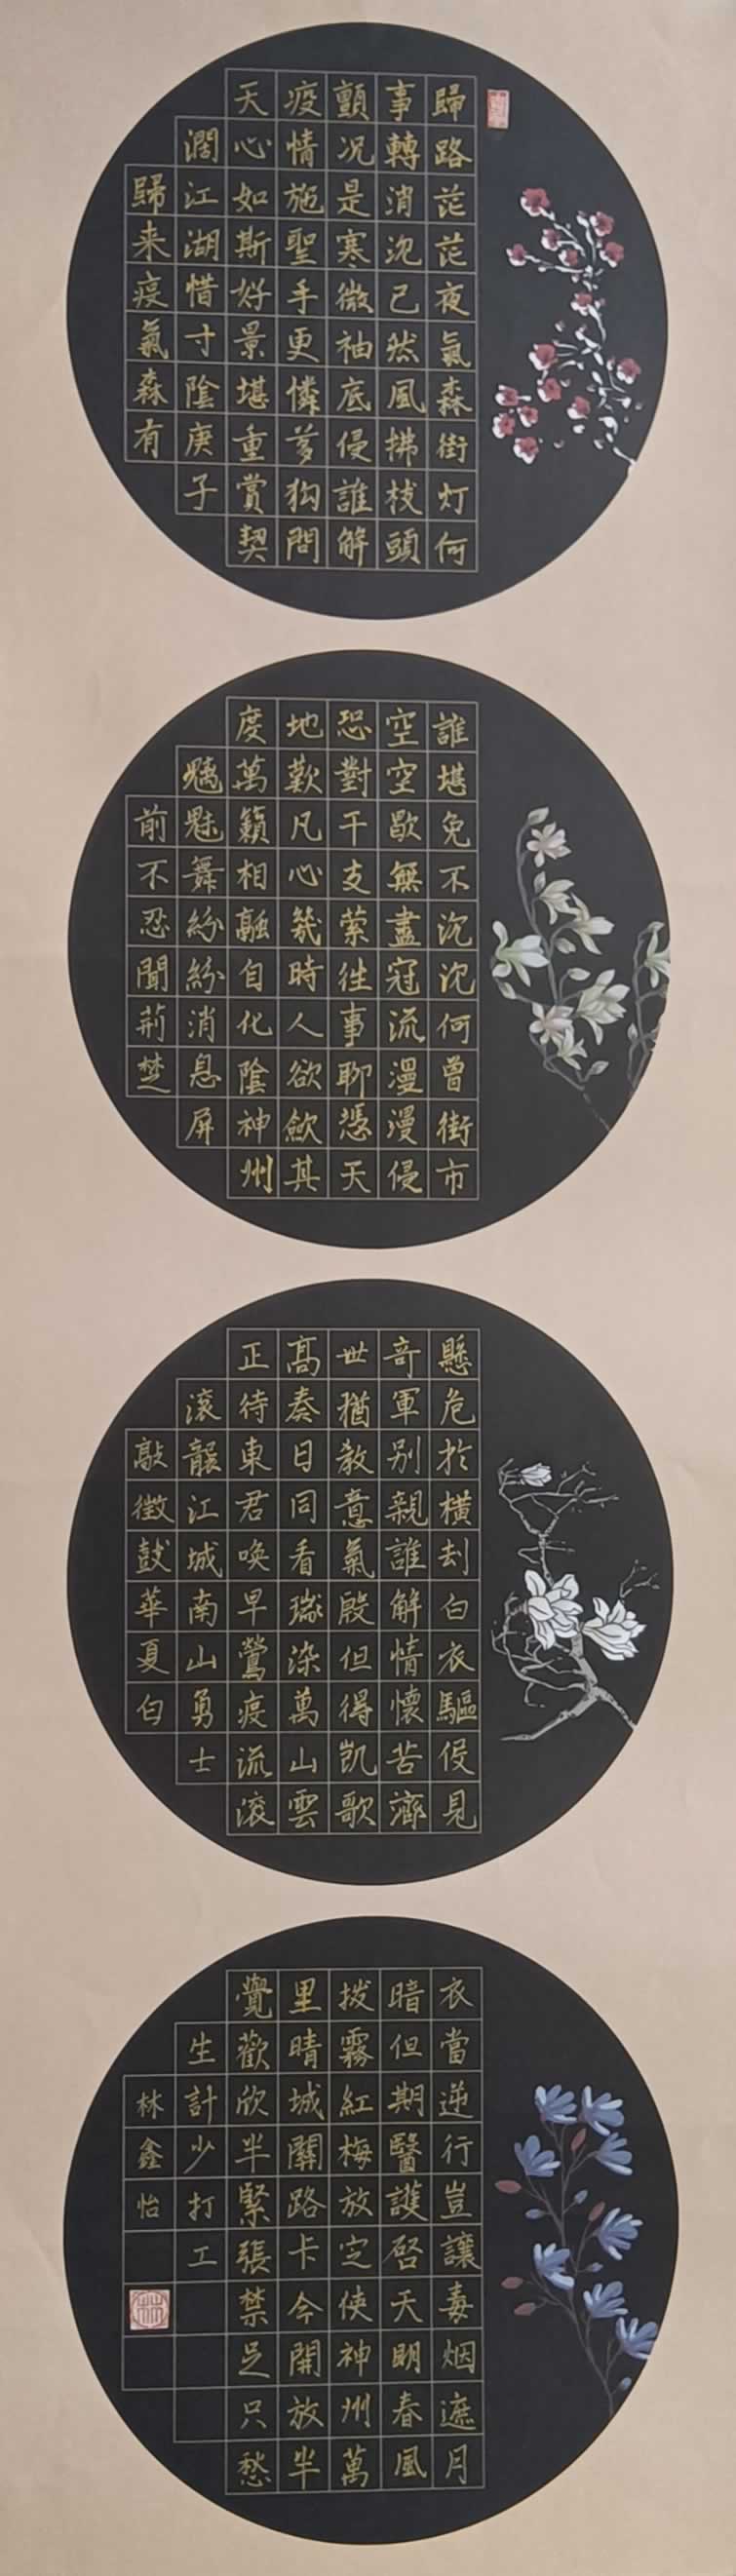 歸路茫茫夜氣森街灯何
事轉消沉已然風拂枝頭
顫况是寒微袖底侵誰解
疫情施聖手更憐芻狗問
天心如斯好景堪重賞契
濶江湖惜寸陰庚子
歸来疫氣森有
誰堪免不沉沉何曾街市
空空歇無盡冠流漫漫侵
恐對干支萦往事聊憑天
地歎凡心幾時人欲歛其
度萬籟相融自化陰神州
魑魅舞紛紛消息屏
前不忍聞荊楚
懸危於橫刦白衣驅促見
奇軍別親誰解情懷苦濟
世猶教意氣殷但得凱歌
高奏日同看瑞染萬山雲
正待東君喚早鶯疫流滾
滾龍江城南山勇士
敲徵鼓華夏白
衣當逆行豈讓毒烟遮月
暗但期醫護啓天明春風
拨霧紅梅放定使神州萬
里晴城關路卡今開放半
覺歡欣半緊張禁足只愁
生計少打工
林鑫怡